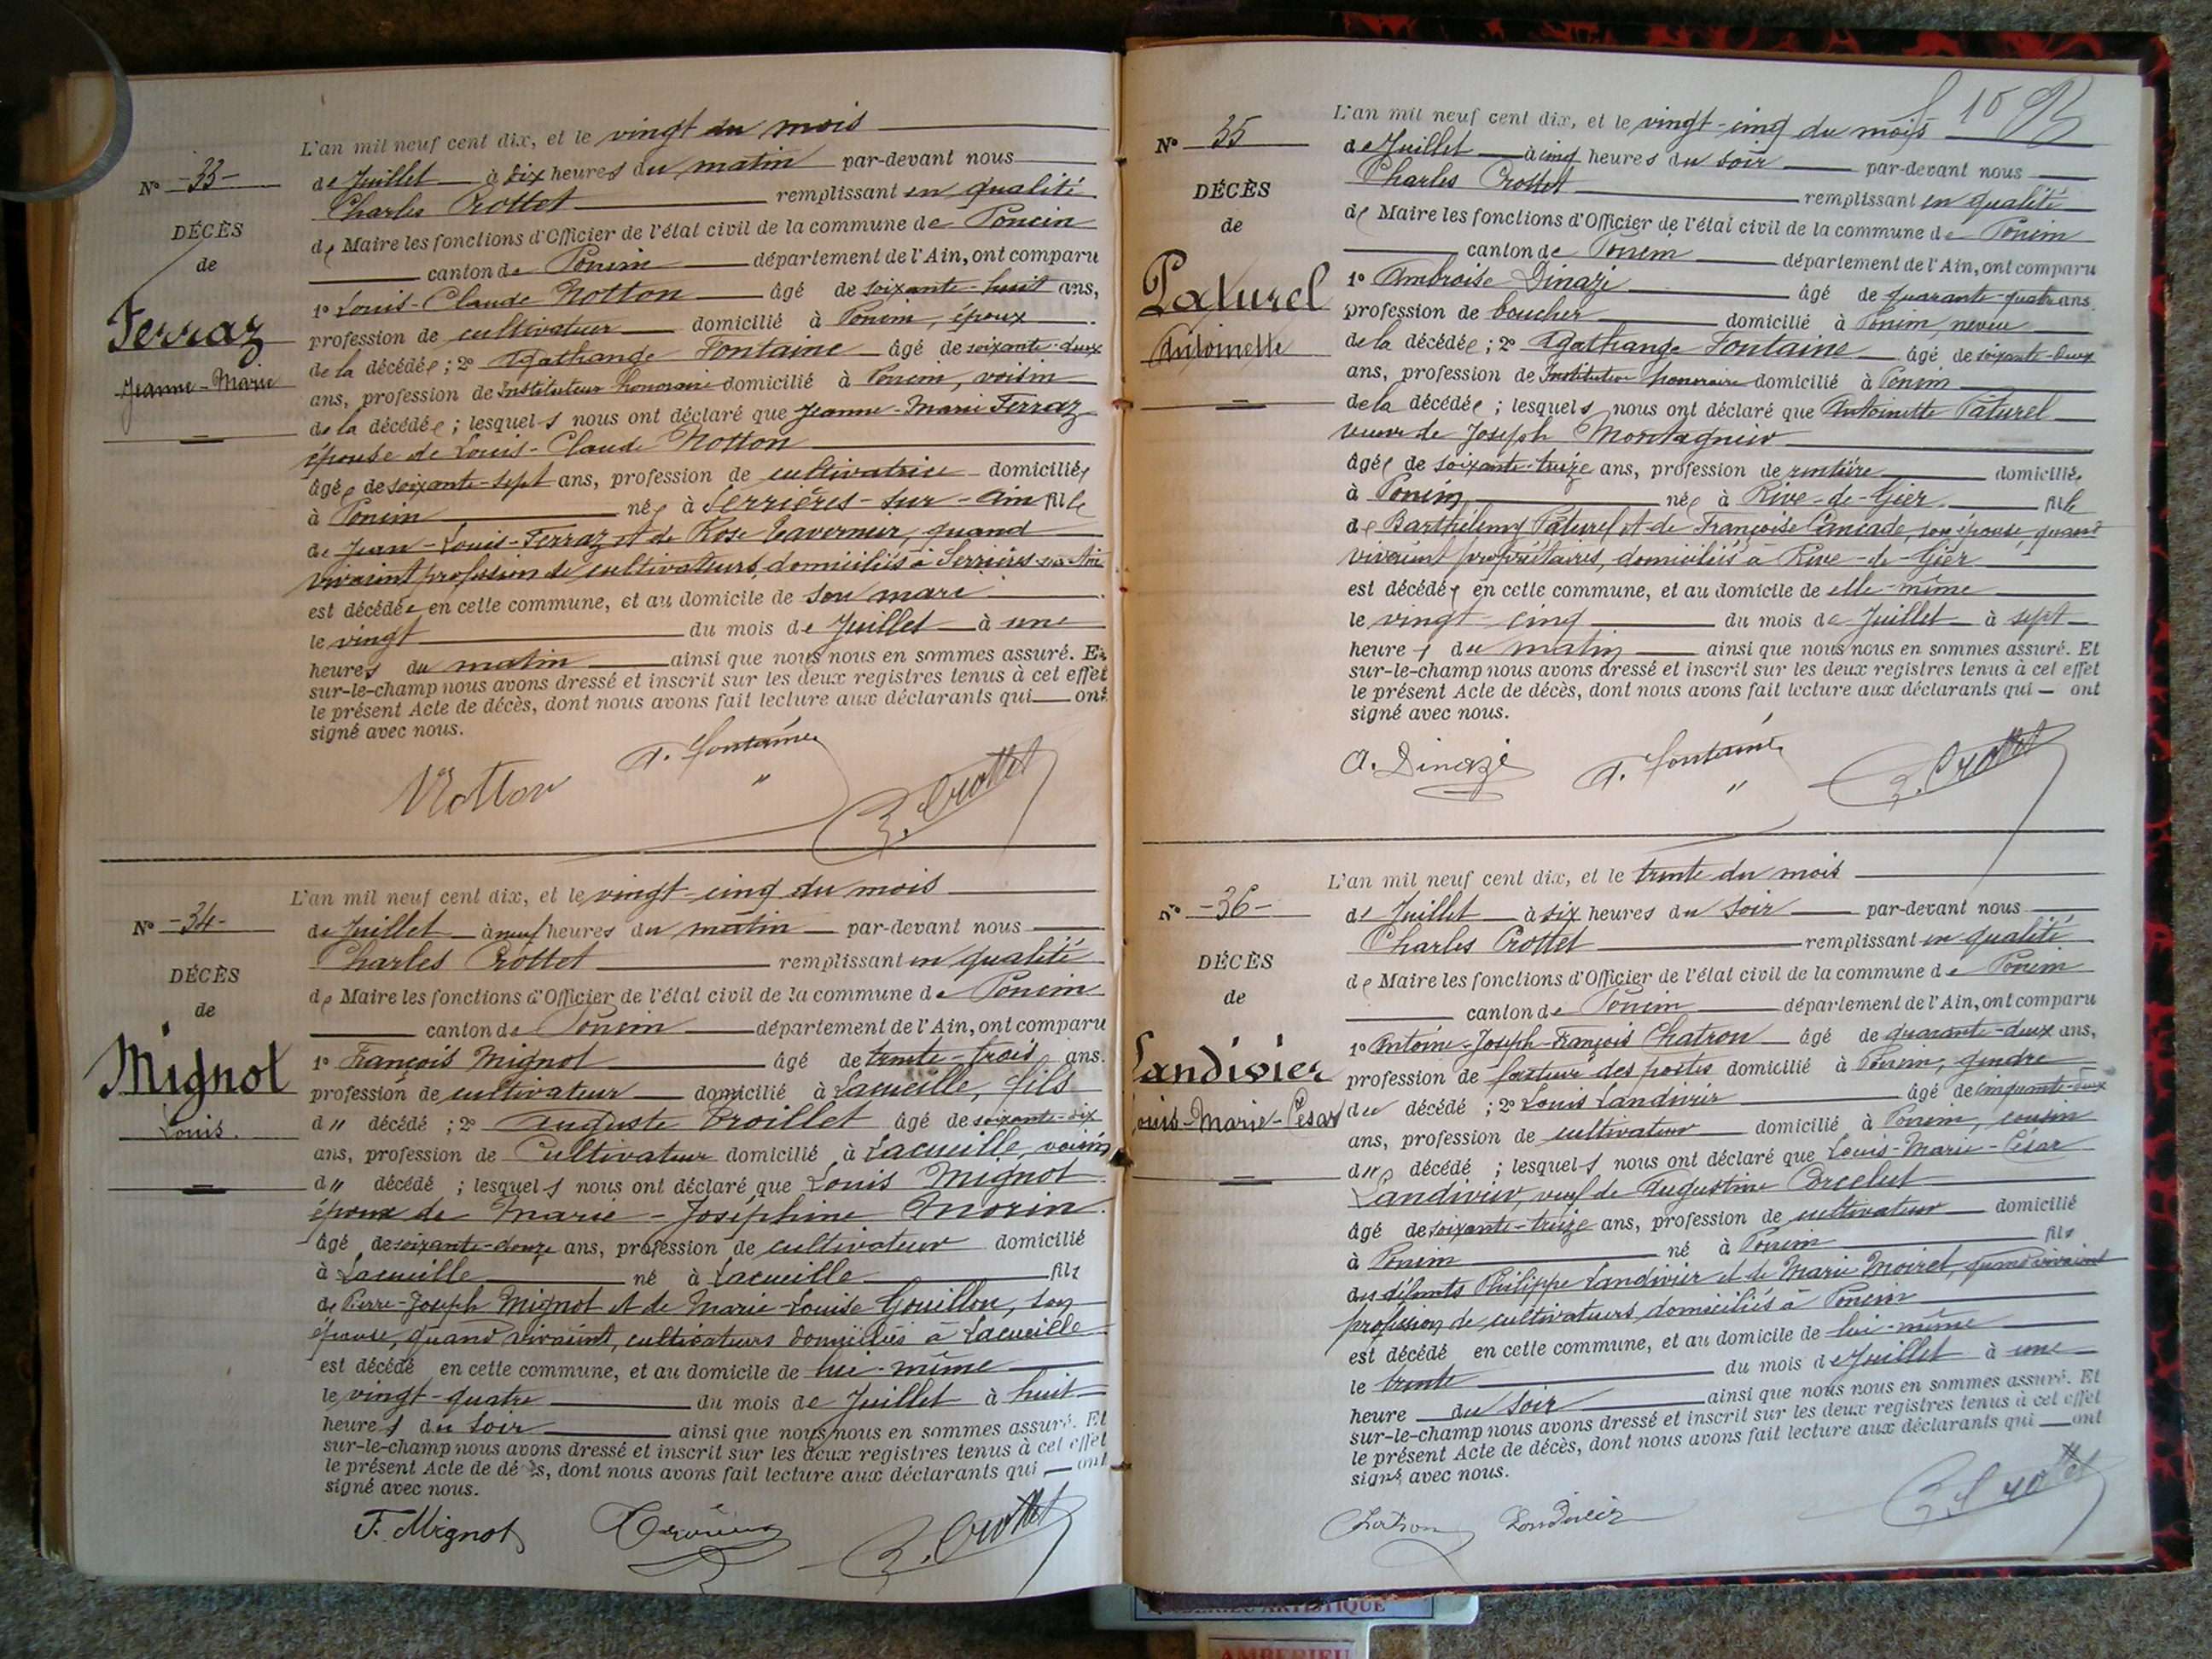 N° -33-
DÉCÈS
de
Ferraz
Jeanne-Marie
L'an mil neuf cent dix, et le vingt du mois
de Juillet à dix heures du matin par-devant nous
Charles Crottet remplissant en qualité
de Maire les fonctions d'Officier de l'état civil de la commune de Poncin
canton de Poncin département de l'Ain, ont comparu
1° Louis-Claude Notton âgé de soixante-huit ans,
profession de cultivateur domicilié à Poncin, époux
de la décédée; 2° Agathange Fontaine âgé de soixante-deux
ans, profession de Instituteur honoraire domicilié à Poncin, voisin
de la décédée; lesquels nous ont déclaré que Jeanne-Marie Ferraz
épouse de Louis-Claude Notton
âgée de soixante-sept ans, profession de cultivatrice domiciliée
à Poncin née à Serrières-sur-Ain fille
de Jean-Louis-Ferraz et de Rose Tavernier, quand
vivaient profession de cultivateurs domiciliés à Serrières-sur-Ain
est décédée en cette commune, et au domicile de son mari
le vingt du mois de Juillet à une
heures du matin ainsi que nous nous en sommes assuré. Et
sur-le-champ nous avons dressé et inscrit sur les deux registres tenus à cet effet
le présent Acte de décès, dont nous avons fait lecture aux déclarants qui ont
signé avec nous.
Notton A. Fontaine C. Crottet
N° -34-
DÉCÈS
de
Mignot
Louis.
L'an mil neuf cent dix, et le vingt-cinq du mois
de Juillet à neuf heures du matin par-devant nous
Charles Crottet remplissant en qualité
de Maire les fonctions d'Officier de l'état civil de la commune de Poncin
canton de Poncin département de l'Ain, ont comparu
1° François Mignot âgé de trente-trois ans.
profession de cultivateur domicilié à Lacueille, fils
du décédé; 2° Auguste Troillet âgé de soixante-dix
ans, profession de Cultivateur domicilié à Lacueille, voisin
du décédé; lesquels nous ont déclaré que Louis Mignot
époux de Marie-Joséphine Morin.
âgé de soixante-douze ans, profession de cultivateur domicilié
à Lacueille né à Lacueille fils
de Pierre-Joseph Mignot et de Marie-Louise Gouillon, son
épouse, quand vivaient, cultivateurs domiciliés à Lacueille
est décédé en cette commune, et au domicile de lui-même
le vingt-quatre du mois de Juillet à huit
heures du soir ainsi que nous nous en sommes assuré. Et
sur-le-champ nous avons dressé et inscrit sur les deux registres tenus à cet effet
le présent Acte de dé s, dont nous avons fait lecture aux déclarants qui ont
signé avec nous.
F. Mignot C. Crottet
N° 35
DÉCÈS
de
Paturel
Antoinette
L'an mil neuf cent dix, et le vingt-cinq du mois
de Juillet à cinq heures du soir par-devant nous
Charles Crottet remplissant en qualité
de Maire les fonctions d'Officier de l'état civil de la commune de Poncin
canton de Poncin département de l'Ain, ont comparu
1° Ambroise Dinazi âgé de quarante-quatre ans
profession de boucher domicilié à Poncin, neveu
de la décédée; 2° Agathange Fontaine âgé de soixante-deux
ans, profession de Instituteur honoraire domicilié à Poncin
de la décédée; lesquels nous ont déclaré que Antoinette Paturel
veuve de Joseph Montagnier
âgée de soixante-treize ans, profession de rentière domiciliée
à Poncin née à Rive-de-Gier fille
de Barthélemy Paturel et de Françoise Cancade, son épouse quand
vivaient propriétaires, domiciliés à Rive-de-Gier
est décédée en cette commune, et au domicile de elle-même
le vingt-cinq du mois de Juillet à sept
heures du matin ainsi que nous nous en sommes assuré. Et
sur-le-champ nous avons dressé et inscrit sur les deux registres tenus à cet effet
le présent Acte de décès, dont nous avons fait lecture aux déclarants qui ont
signé avec nous.
A. Dinazi A. Fontaine C. Crottet
N° -36-
DÉCÈS
de
Landivier
Louis-Marie-César
L'an mil neuf cent dix, et le trente du mois
de Juillet à six heures du soir par-devant nous
Charles Crottet remplissant en qualité
de Maire les fonctions d'Officier de l'état civil de la commune de Poncin
canton de Poncin département de l'Ain, ont comparu
1° Antoine-Joseph-François Chatron âgé de quarante-deux ans,
profession de facteur des postes domicilié à Poncin, gendre
du décédé; 2° Louis Landivier âgé de cinquante-deux
ans, profession de cultivateur domicilié à Poncin, cousin
du décédé; lesquels nous ont déclaré que Louis-Marie-César
Landivier, veuf de Augustine Corcelut
âgé de soixante-treize ans, profession de cultivateur domicilié
à Poncin né à Poncin fils
des défunts Philippe Landivier et de Marie Moiret, quand vivaient
profession de cultivateurs, domiciliés à Poncin
est décédé en cette commune, et au domicile de lui-même
le trente du mois de Juillet à une
heure du soir ainsi que nous nous en sommes assuré. Et
sur-le-champ nous avons dressé et inscrit sur les deux registres tenus à cet effet
le présent Acte de décès, dont nous avons fait lecture aux déclarants qui ont
signé avec nous.
Chatron Landivier C. Crottet
ARTISTIQUE
AMBERIEU